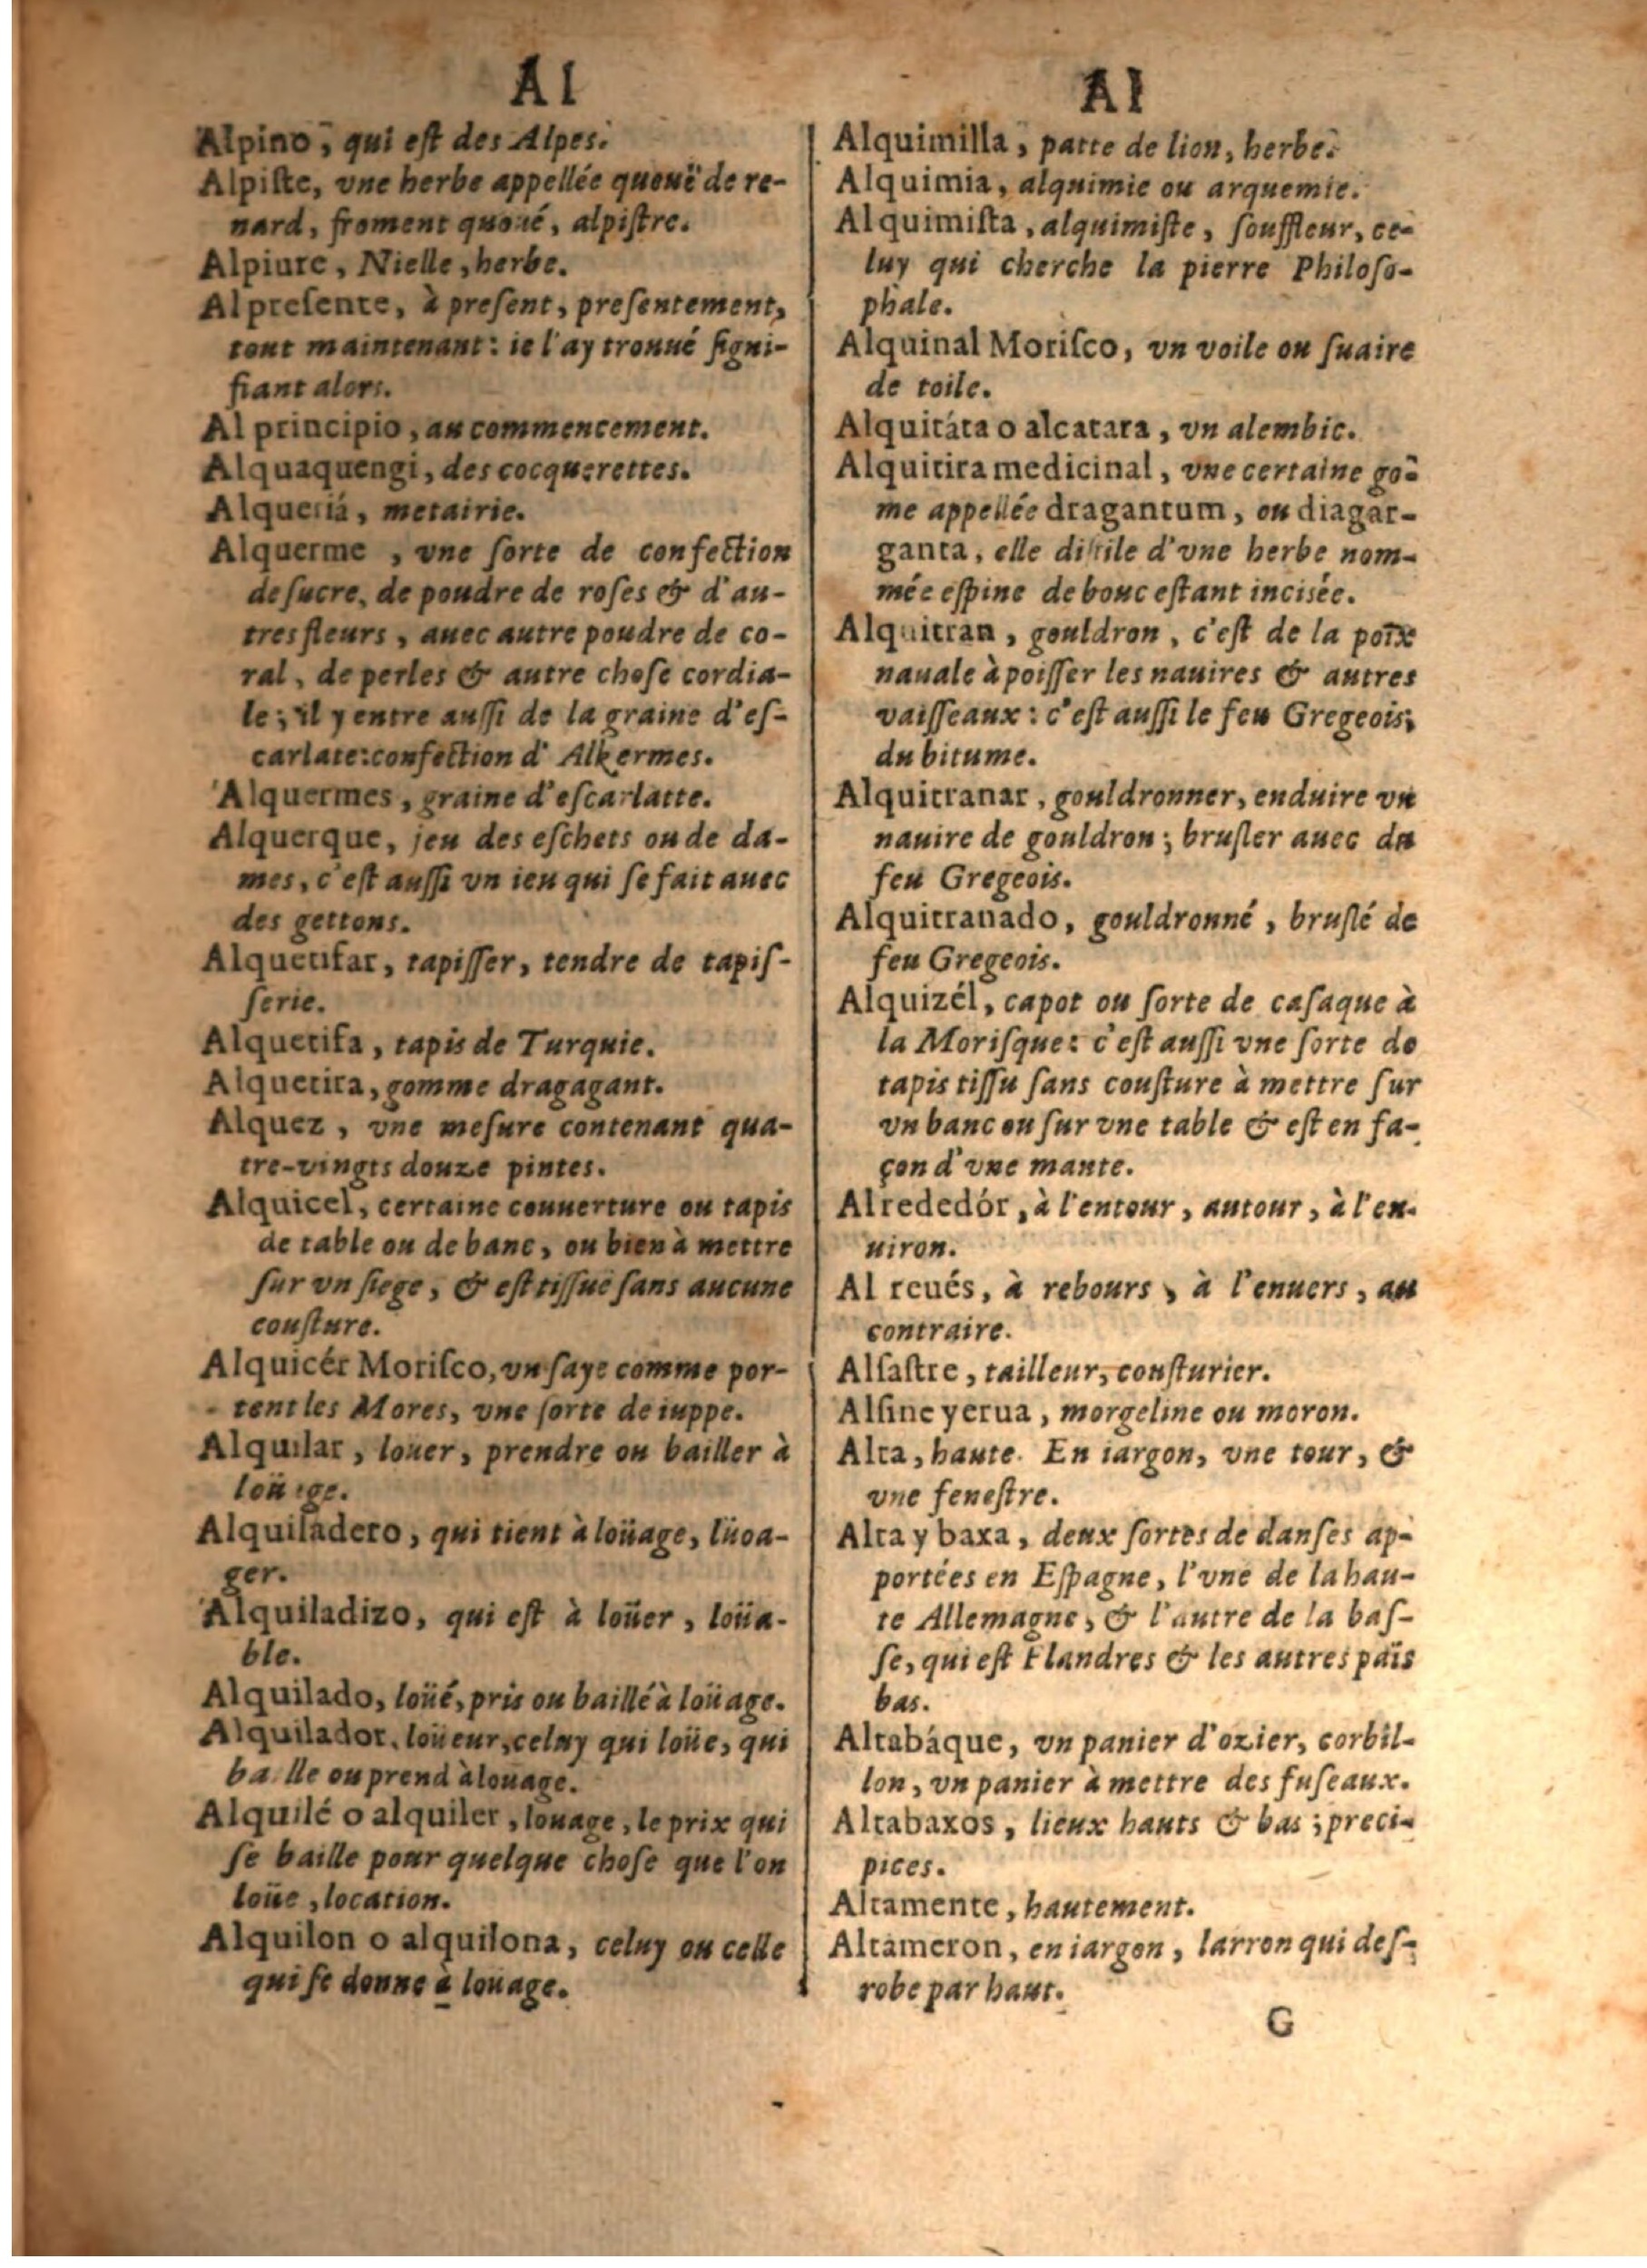 Al
Alpino, qui eſt des Alpes.
Alpiſte, vne herbe appellée queuë de re-
nard, froment quoué, alpiſtre.
Alpiure, Nielle, herbe.
Al preſente, à preſent, preſentement,
tout maintenant: ie l'ay trouué ſigni-
fiant alors.
Al principio, au commencement.
Alquaquengi, des cocquerettes.
Alqueriá, metairie.
Alquerme, vne ſorte de confection
de ſucre, de poudre de roſes & d'au-
tres fleurs, auec autre poudre de co-
ral, de perles & autre choſe cordia-
le; il y entre auſſi de la graine d'eſ-
carlate: confection d'Alkermes.
Alquermes, graine d'eſcarlatte.
Alquerque, jeu des eſchets ou de da-
mes, c'eſt auſſi vn ieu qui ſe fait auec
des gettons.
Alquetifar, tapiſſer, tendre de tapiſ-
ſerie.
Alquetifa, tapis de Turquie.
Alquetira, gomme dragagant.
Alquez, vne meſure contenant qua-
tre-vingts douze pintes.
Alquicel, certaine couuerture ou tapis
de table ou de banc, ou bien à mettre
ſur vn ſiege, & eſt tiſſuë ſans aucune
couſture.
Alquicér Moriſco, vn ſaye comme por-
tent les Mores, vne ſorte de iuppe.
Alquilar, louer, prendre ou bailler à
loüage.
Alquiladero, qui tient à loüage, lüoa-
ger.
Alquiladizo, qui eſt à loüer, loüa-
ble.
Alquilado, loüé, pris ou baillé à loüage.
Alquilador, loüeur, celuy qui loüe, qui
baille ou prend à louage.
Alquilé o alquiler, louage, le prix qui
ſe baille pour quelque choſe que l'on
loüe, location.
Alquilon o alquilona, celuy ou celle
qui ſe donne à louage.
Al
Alquimilla, patte de lion, herbe.
Alquimia, alquimie ou arquemie.
Alquimiſta, alquimiſte, ſouffleur, ce-
luy qui cherche la pierre Philoſo-
phale.
Alquinal Moriſco, vn voile ou ſuaire
de toile.
Alquitáta o alcatara, vn alembic.
Alquitira medicinal, vne certaine gō-
me appellée dragantum, ou diagar-
ganta, elle diſtile d'vne herbe nom-
mée eſpine de bouc eſtant incisée.
Alquitran, gouldron, c'eſt de la poix
nauale à poiſſer les nauires & autres
vaiſſeaux: c'eſt auſſi le feu Gregeois;
du bitume.
Alquitranar, gouldronner, enduire vn
nauire de gouldron; bruſler auec du
feu Gregeois.
Alquitranado, gouldronné, bruſlé de
feu Gregeois.
Alquizél, capot ou ſorte de caſaque à
la Moriſque: c'eſt auſſi vne ſorte de
tapis tiſſu ſans couſture à mettre ſur
vn banc ou ſur vne table & eſt en fa-
çon d'vne mante.
Alrededór, à l'entour, autour, à l'en-
uiron.
Al reués, à rebours, à l'enuers, au
contraire.
Alſaſtre, tailleur, couſturier.
Alſine yerua, morgeline ou moron.
Alta, haute. En iargon, vne tour, &
vne feneſtre.
Alta y baxa, deux ſortes de danſes ap-
portées en Eſpagne, l'vne de la hau-
te Allemagne, & l'autre de la baſ-
ſe, qui eſt Flandres & les autres païs
bas.
Altabáque, vn panier d'ozier, corbil-
lon, vn panier à mettre des fuſeaux.
Altabaxos, lieux hauts & bas; preci-
pices.
Altamente, hautement.
Altameron, en iargon, larron qui deſ-
robe par haut.
G